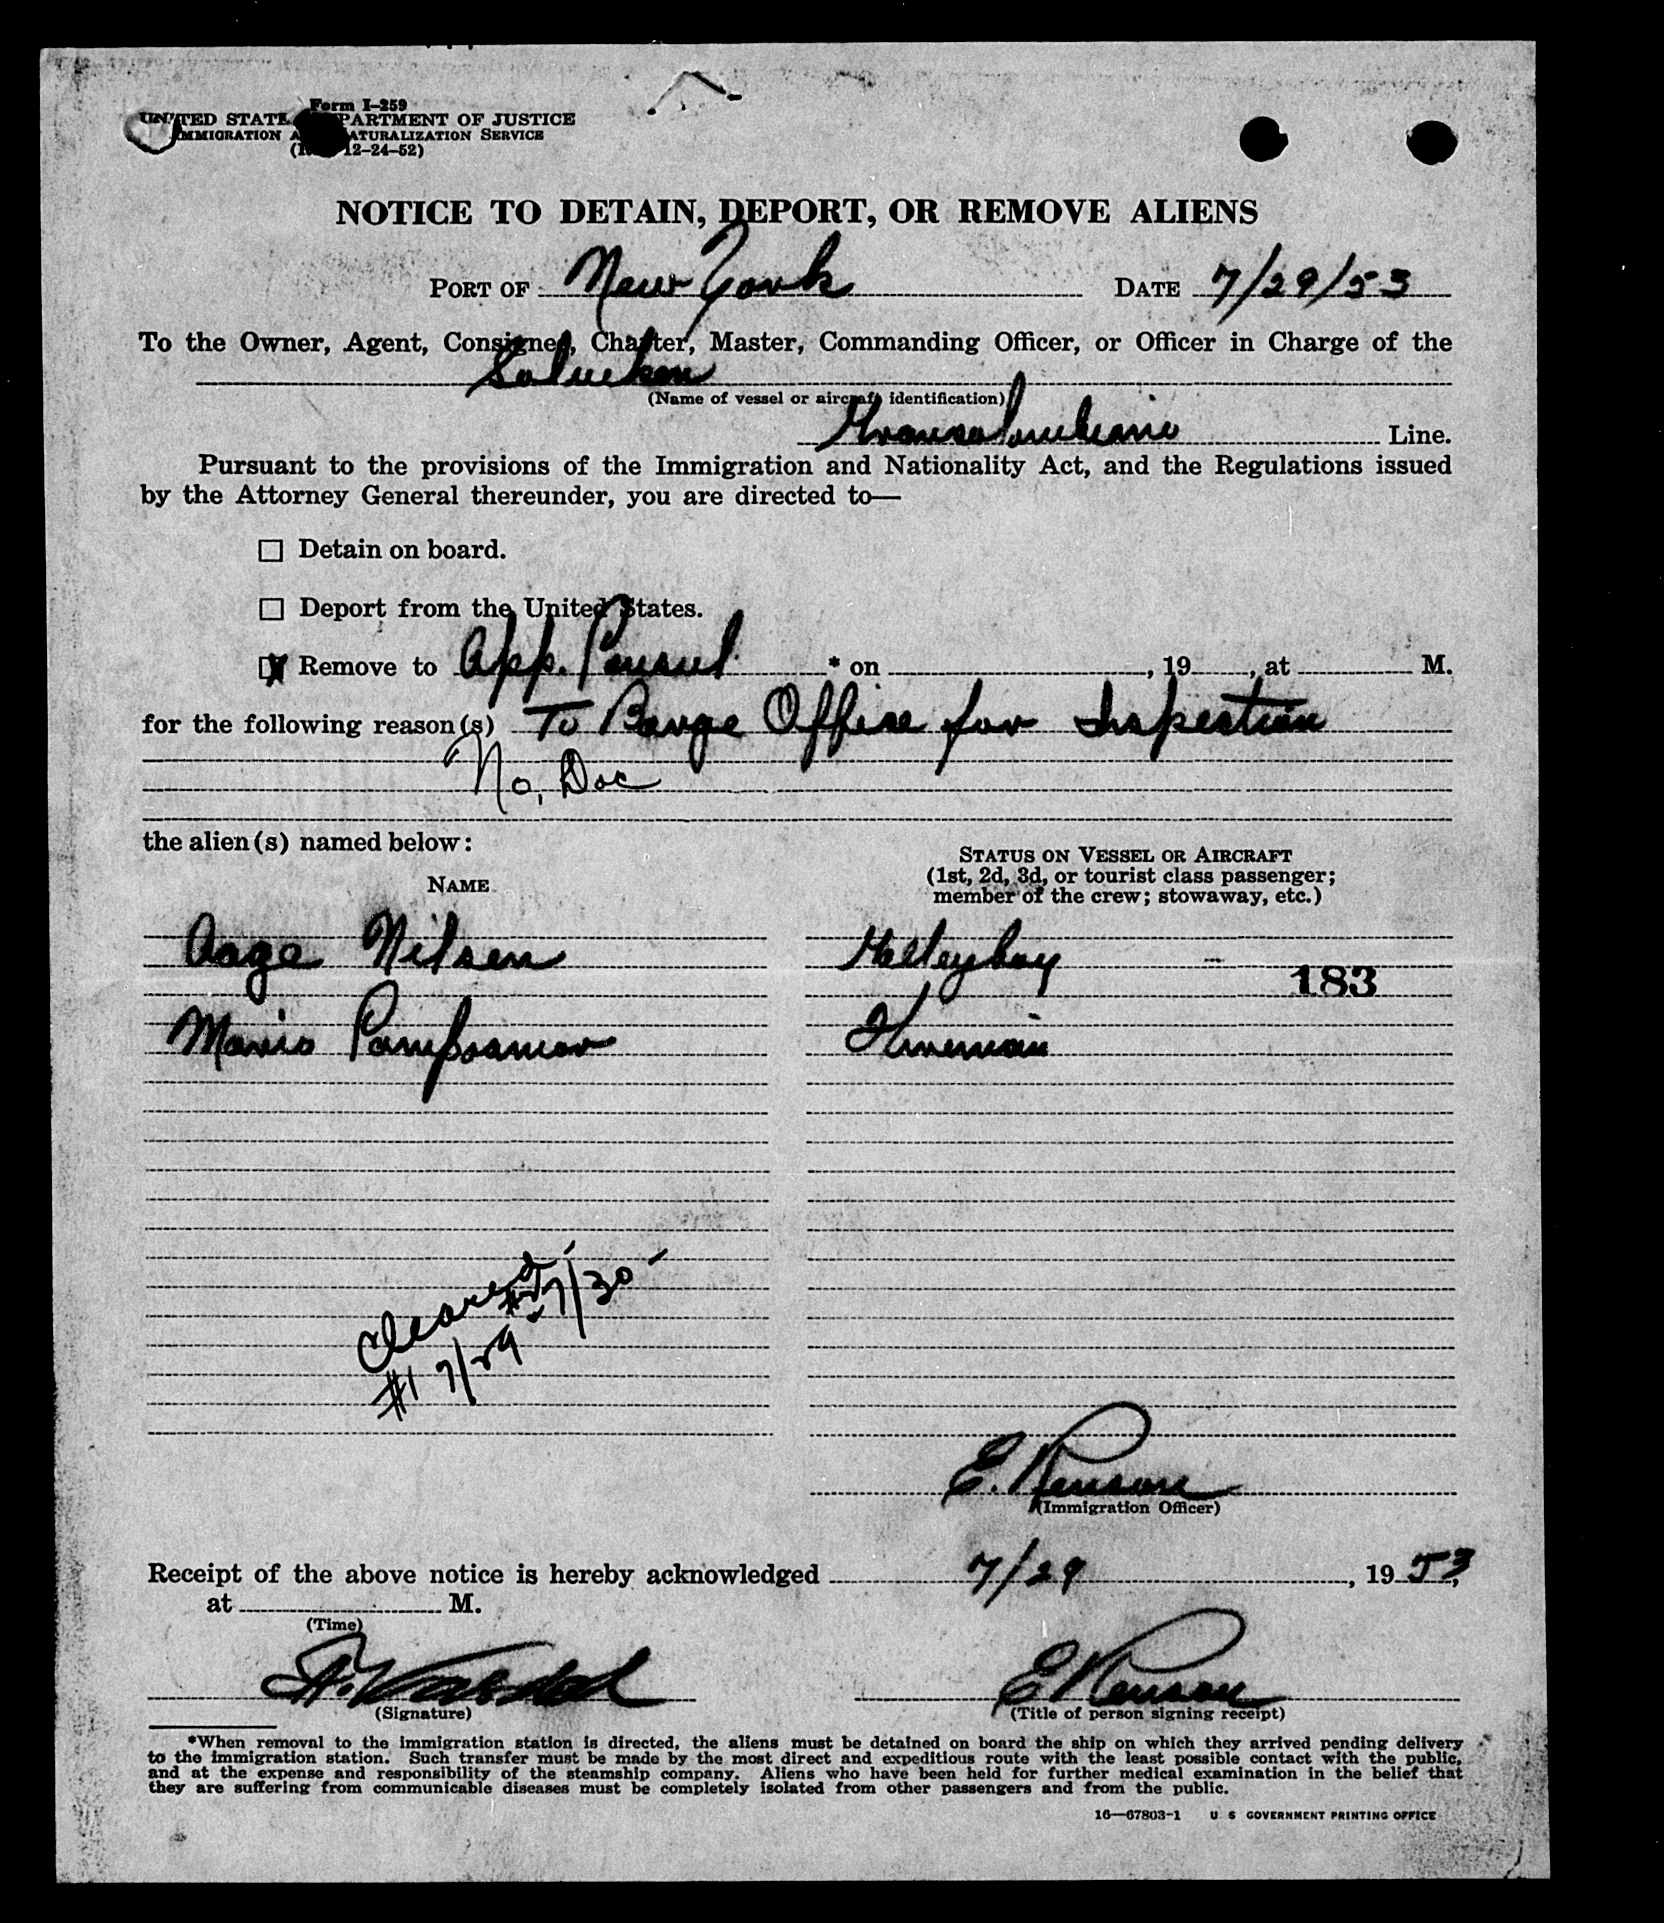 Form I-259
UNITED STATES DEPARTMENT OF JUSTICE
IMMIGRATION AND NATURALIZATION SERVICE
12-24-52)
NOTICE TO DETAIN, DEPORT, OR REMOVE ALIENS
PORT OF New York DATE 7/29/53
To the Owner, Agent, Consignee, Charter, Master, Commanding Officer, or Officer in Charge of the
(Name of vessel or aircraft identification)
Line.
Pursuant to the provisions of the Immigration and Nationality Act, and the Regulations issued
by the Attorney General thereunder, you are directed to—
Detain on board.
Deport from the United States.
X Remove to App. * on , 19 , at M.
for the following reason(s) To Barge Office for Inspection
No. Doc
the alien(s) named below:
STATUS ON VESSEL OR AIRCRAFT
(1st, 2d, 3d, or tourist class passenger;
member of the crew; stowaway, etc.)
NAME
Aage Nilsen Galleyboy
183
Cleared #2 7/30
#1 7/29
(Immigration Officer)
Receipt of the above notice is hereby acknowledged 7/29, 1953,
at M.
(Time)
(Signature) (Title of person signing receipt)
*When removal to the immigration station is directed, the aliens must be detained on board the ship on which they arrived pending delivery
to the immigration station. Such transfer must be made by the most direct and expeditious route with the least possible contact with the public,
and at the expense and responsibility of the steamship company. Aliens who have been held for further medical examination in the belief that
they are suffering from communicable diseases must be completely isolated from other passengers and from the public.
16—67803-1 U S GOVERNMENT PRINTING OFFICE